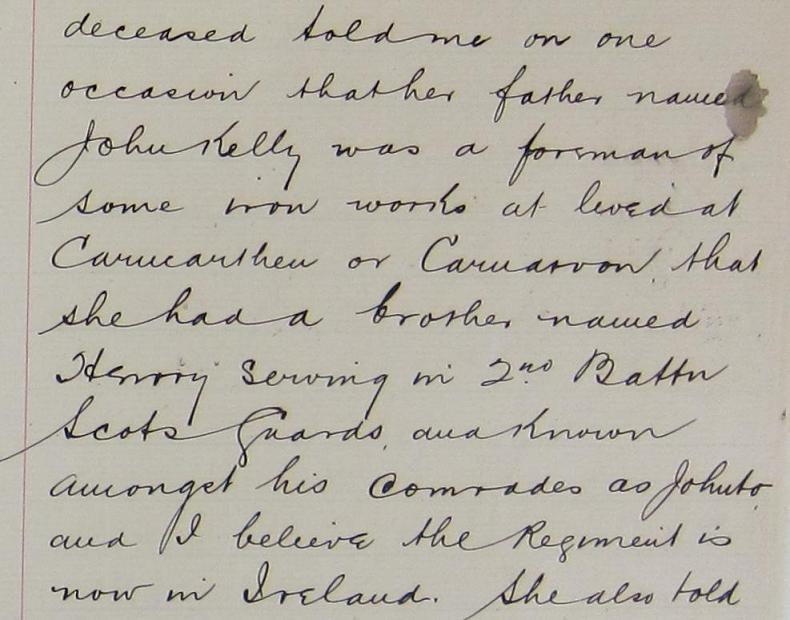 deceased told me on one
occasion that her father named
John Kelly was a foreman of
some iron works at lived at
Carmarthen or Carnarvon, that
she had a brother named
Henry serving in 2nd Battn
Scots Guards, and known
amongst his comrades as Johnto
and I believe the Regiment is
now in Ireland. She also told